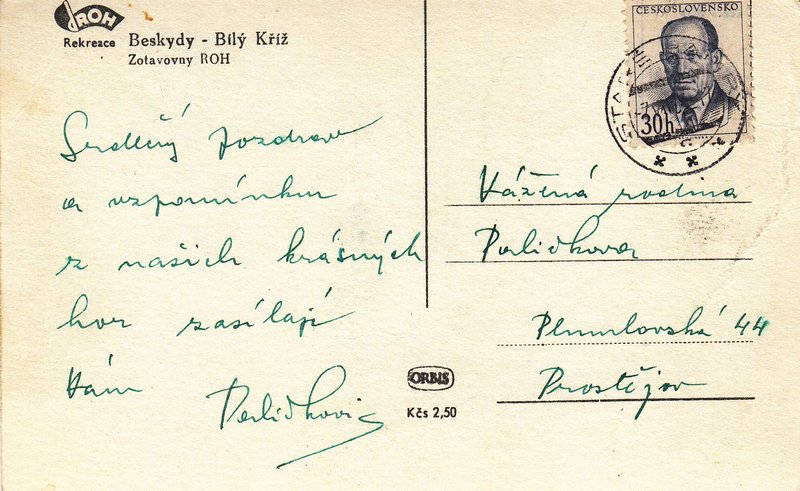 ROH
Rekreace
Beskydy - Bílý Kříž
Zotavovny ROH
Srdečný pozdrav
a vzpomínku
z našich krásných
hor zasílají
Vám
ČESKOSLOVENSKO
30h
Vážená rodina
Plumlovská 44
Prostějov
ORBIS
Kčs 2,50